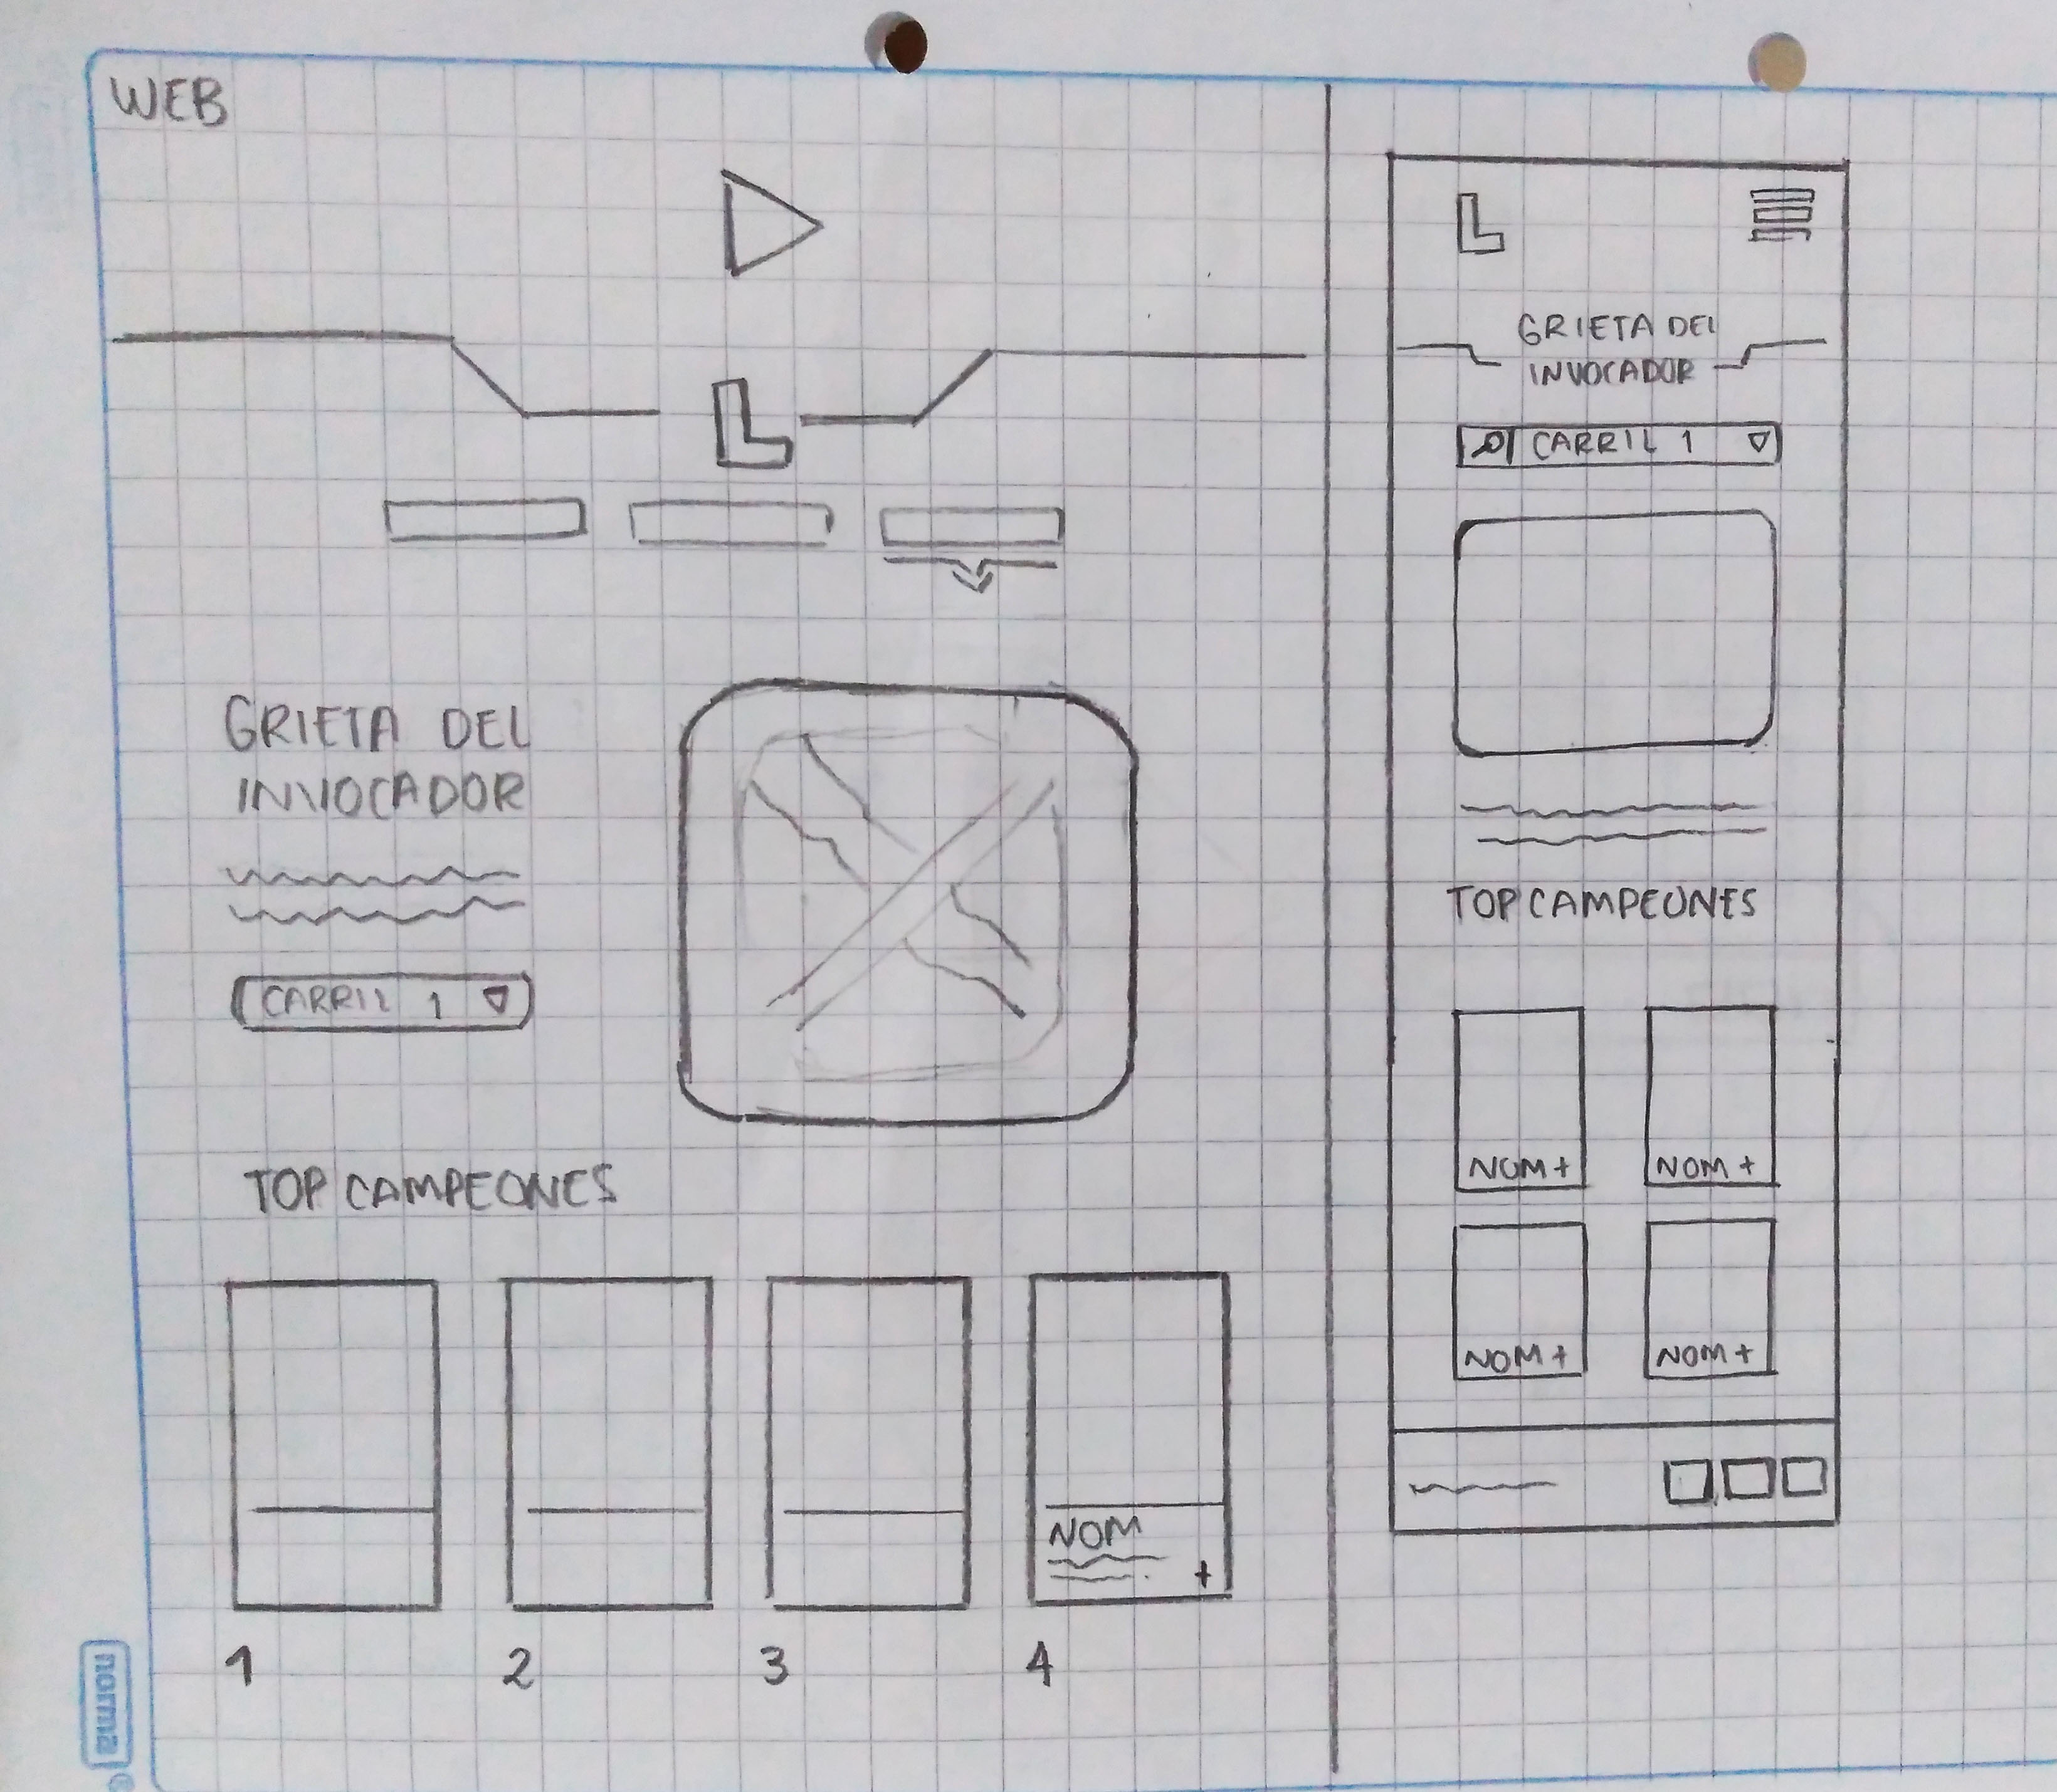 WEB
L
GRIETA DEL
INVOCADOR
CARRIL 1
TOP CAMPEONES
NOM
+
1 2 3 4
norma
L
GRIETA DEL
INVOCADOR
CARRIL 1
TOP CAMPEONES
NOM + NOM +
NOM + NOM +